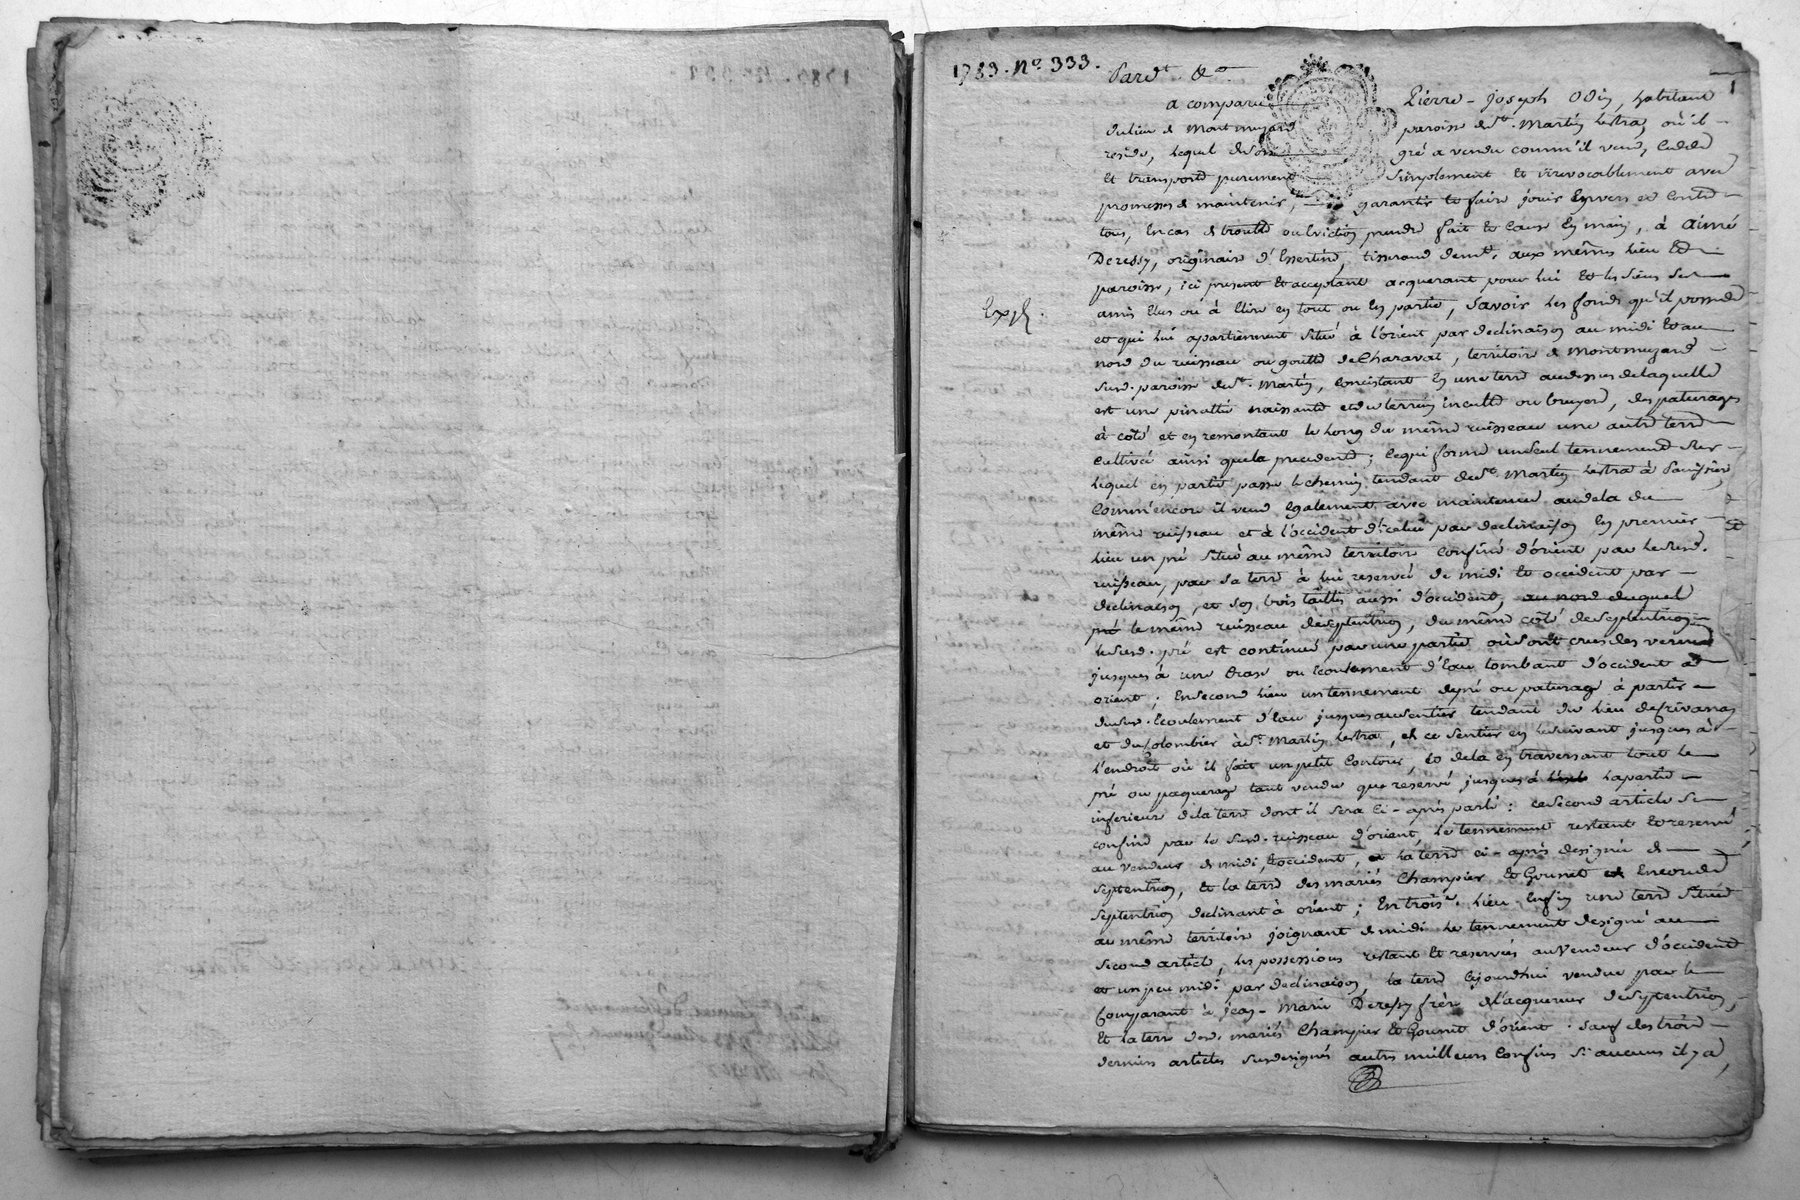 1783. No. 333.
Pard.t &a.
a comparu Pierre - joseph Odin, habitant
du lieu de Montmuzard paroisse de St. Martin lestra, où il
reside, lequel de son gré a vendu comm'il vend, cede
et transporte purement simplement et irrevocablement avec
promesses de maintenir, garantir et faire jouir envers et contre
tous, en cas de trouble ou eviction prendre fait et cause en main, à Aimé
Deressy, originaire d'Essertine, tisserand demt. aux mêmes lieu et
paroisse, ici present et acceptant acquerant pour lui et les siens ses
Exp.
amis elus ou à elire en tout ou en partie, Savoir les fonds qu'il possede
et qui lui apartiennent situé à l'orient par declinaison au midi et au
nord du ruisseau ou goutte de Charavat, territoire de Montmuzard
susd. paroisse de St. Martin, Concistant en une terre au dessus de laquelle
est une pinatte naissante et du terrein inculte ou bruyere, des paturages
à côté et en remontant le long du même ruisseau une autre terre
cultivée ainsi que la precedente; ce qui forme un seul tennement sur
lequel en partie passe le chemin tendant de St. Martin lestra à Panissiere,
Comm'encore il vend egalement avec maintenue au dela du
même ruisseau et à l'occident d'icelui par declinaison en premier
lieu un pré situé au même territoire confiné d'orient par le susd.
ruisseau, par sa terre à lui reservée de midi et occident par
declinaison, et son bois taillis aussi d'occident, au nord duquel
pré le même ruisseau de septentrion, du même côté de septentrion
le susd. pré est continué par une partie où sont crus des vernes
jusques à une ou ecoulement d'eau tombant d'occident à
orient; En second lieu un tennement de pré ou paturage à partir
du susd. ecoulement d'eau jusques au sentier tendant du lieu de
et du Colombier à St. Martin lestra, et ce sentier en le suivant jusques à
l'endroit où il fait un petit contour, et de la en traversant tout le
pré ou paquerage tant vendu que reservé jusques à la partie
inferieure de la terre dont il sera ci - après parlé: ce second article se
confine par le susd. ruisseau d'orient, le tennement restant et reservé
au vendeur de midi, et occident, et la terre ci - après designée de
septentrion, et la terre des mariés Champier et Gounet et encore de
septentrion declinant à orient; En troise. lieu enfin une terre située
au même territoire joignant de midi le tennement designé au
second article, les possessions restant et reservées au vendeur d'occident
et un peu midi par declinaison, la terre cejourdhui vendue par le
Comparant à jean - Marie Deressy frère de l'acquereur de septentrion,
et la terre desd. mariés Champier et Gounet d'orient. sauf des trois
derniers articles susdesignés autres meilleurs confins si aucuns il y a,